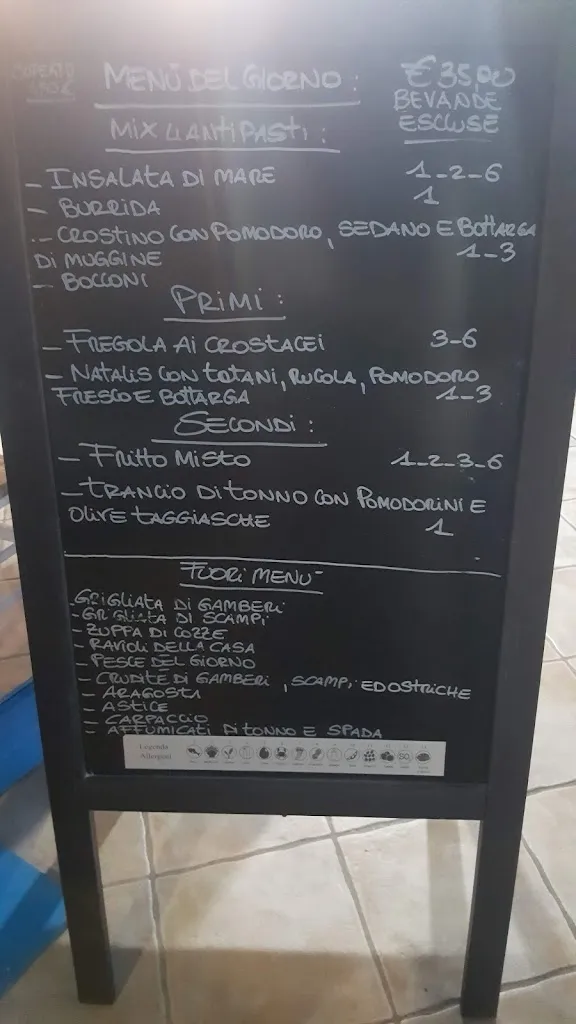 COPERTO
MENÙ DEL GIORNO: € 35,00
BEVANDE
ESCLUSE
MIX 4 ANTIPASTI:
- INSALATA DI MARE 1-2-6
- BURRIDA 1
- CROSTINO CON POMODORO, SEDANO E BOTTARGA
DI MUGGINE 1-3
- BOCCONI
PRIMI:
- FREGOLA AI CROSTACEI 3-6
- NATALIS CON TOTANI, RUCOLA, POMODORO
FRESCO E BOTTARGA 1-3
SECONDI:
- FRITTO MISTO 1-2-3-6
- TRANCIO DI TONNO CON POMODORINI E
OLIVE TAGGIASCHE 1
FUORI MENÙ
- GRIGLIATA DI GAMBERI
- GRIGLIATA DI SCAMPI
- ZUPPA DI COZZE
- RAVIOLI DELLA CASA
- PESCE DEL GIORNO
- CRUDITÈ DI GAMBERI, SCAMPI ED OSTRICHE
- ARAGOSTA
- ASTICE
- CARPACCIO
- AFFUMICATI DI TONNO E SPADA
Legenda
Allergeni